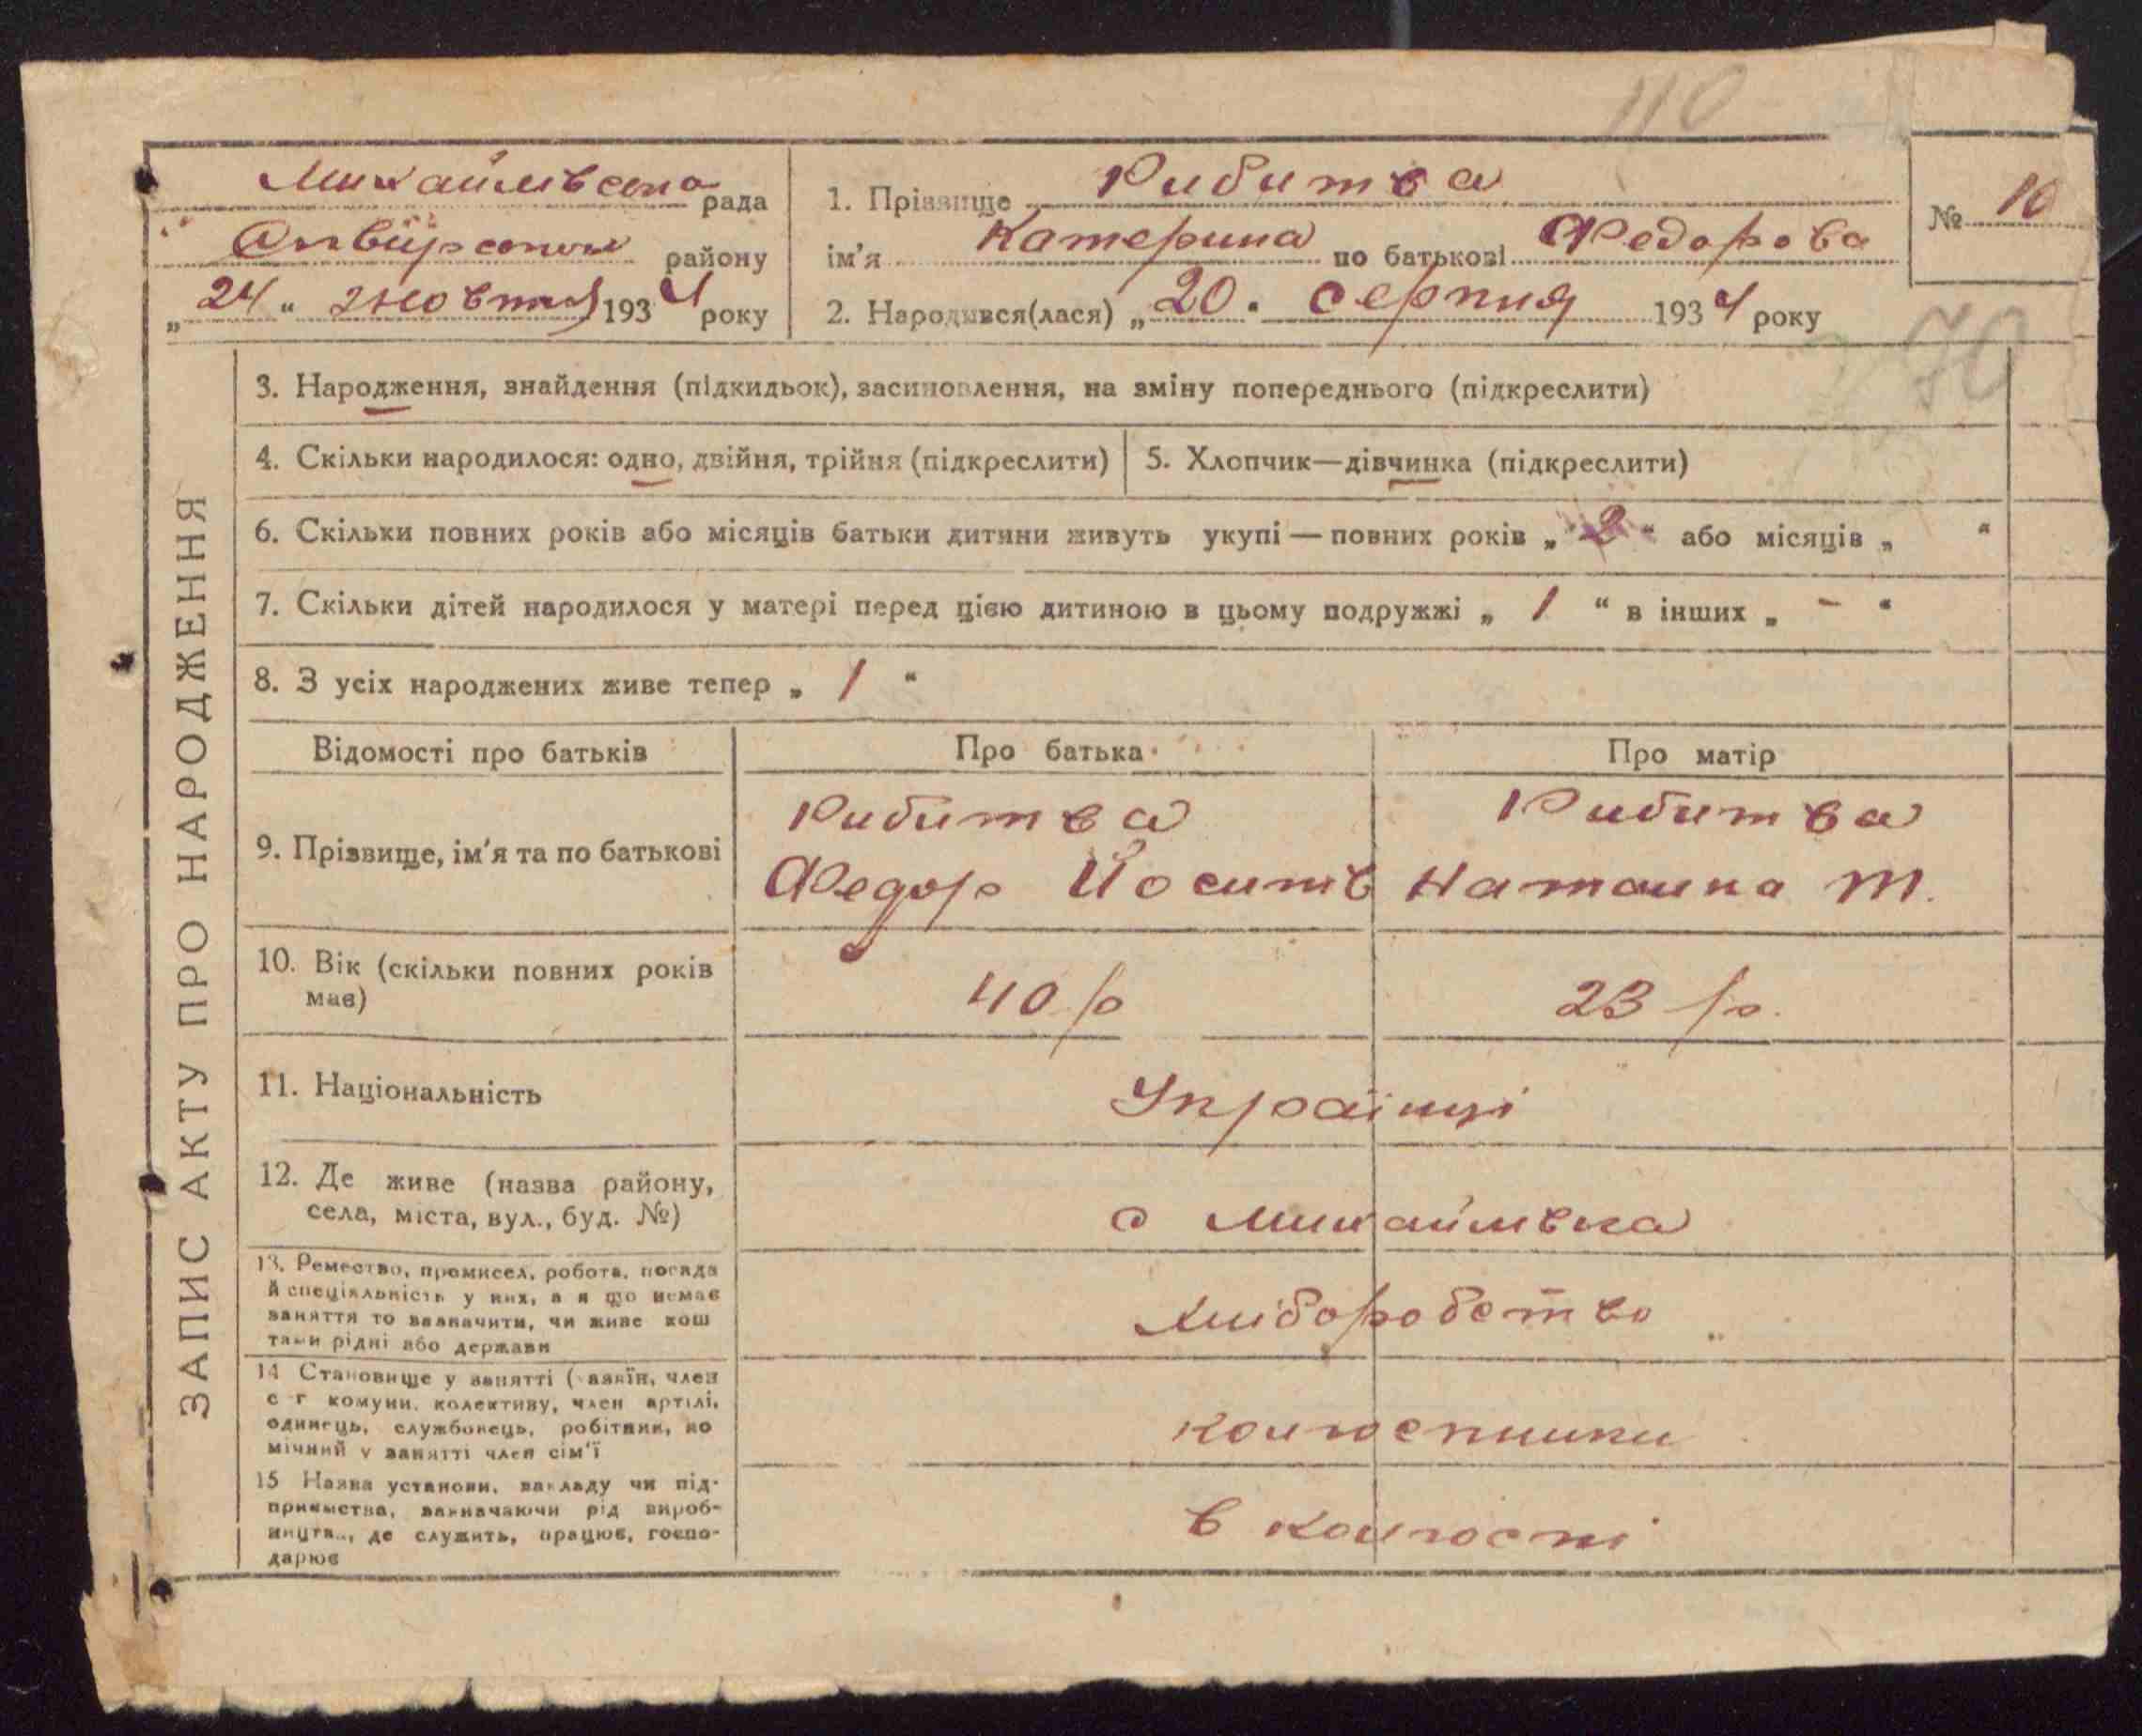 110
Михайлівська рада
Сквирського району
„24“ жовтня 1934 року
1. Прізвище Рибитва
ім'я Катерина по батькові Федорова
2. Народився(лася) „20. серпня 1934 року
№ 10
70
ЗАПИС АКТУ ПРО НАРОДЖЕННЯ
3. Народження, знайдення (підкидьок), засиновлення, на зміну попереднього (підкреслити)
4. Скільки народилося: одно, двійня, трійня (підкреслити)
5. Хлопчик—дівчинка (підкреслити)
6. Скільки повних років або місяців батьки дитини живуть укупі — повних років „2“ або місяців „ “
7. Скільки дітей народилося у матері перед цією дитиною в цьому подружжі „ 1 “ в інших „ - “
8. З усіх народжених живе тепер „ 1 “
Відомості про батьків Про батька Про матір
9. Прізвище, ім'я та по батькові
Рибитва
Федор Йосипів
Рибитва
Наталка Т.
10. Вік (скільки повних років
має)
40 р
23 р.
11. Національність
Українці
12. Де живе (назва району,
села, міста, вул., буд. №)
с Михайлівка
13. Ремество, промисел, робота, посада
й спеціяльність у них, а я що немає
заняття то зазначити, чи живе кош
тами рідні або держави
хліборобство
14 Становище у занятті (хазяїн, член
с г комуни, колективу, член артілі,
одинець, службовець, робітник, по
мічний у занятті член сім'ї
колгоспники
15 Назва установи, закладу чи під-
приємства, зазначаючи рід вироб-
ництва, де служить, працює, госпо-
дарює
в колгоспі